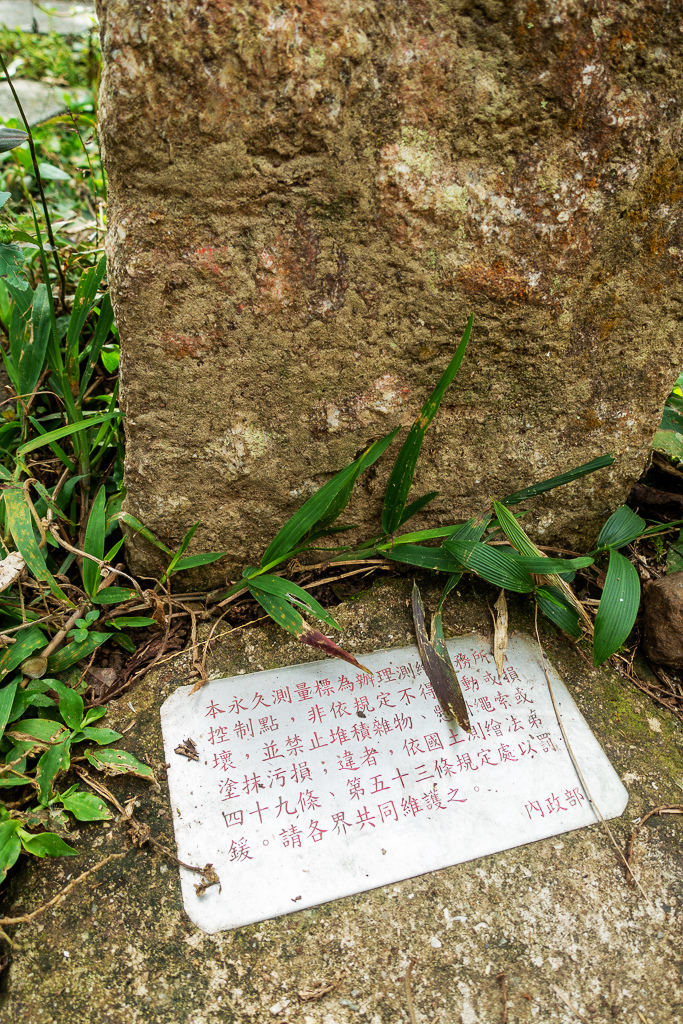 本永久測量標為辦理測繪 務所
控制點，非依規定不得 動或損
壞，並禁止堆積雜物、懸 繩索或
塗抹污損；違者，依國土測繪法第
四十九條、第五十三條規定處以罰
鍰。請各界共同維護之。
內政部